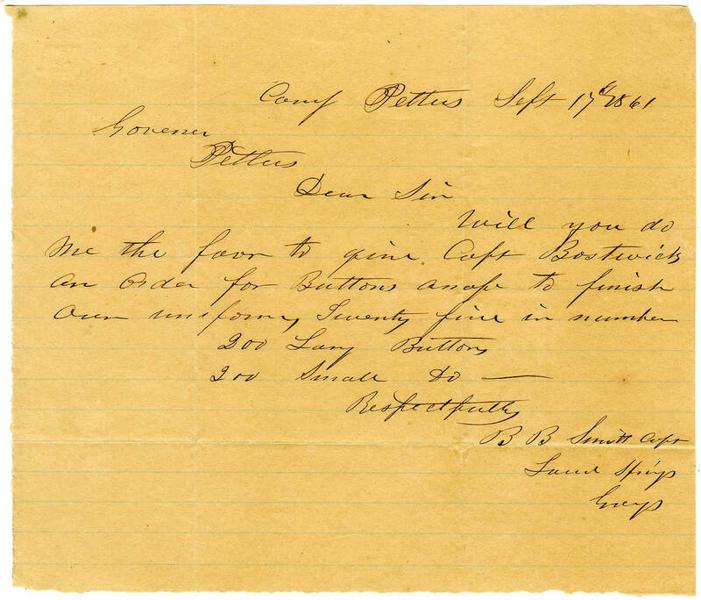 Camp Pettus Sept 17th 1861
Govener
Pettus
Dear Sir
Will you do
me the favor to give Capt Bostwick
an order for Buttons anofe to finish
our uniforms, Twenty five in number
200 Larg Buttons
200 Small Do —
Respectfully
B B Smith Capt
Springs
Greys